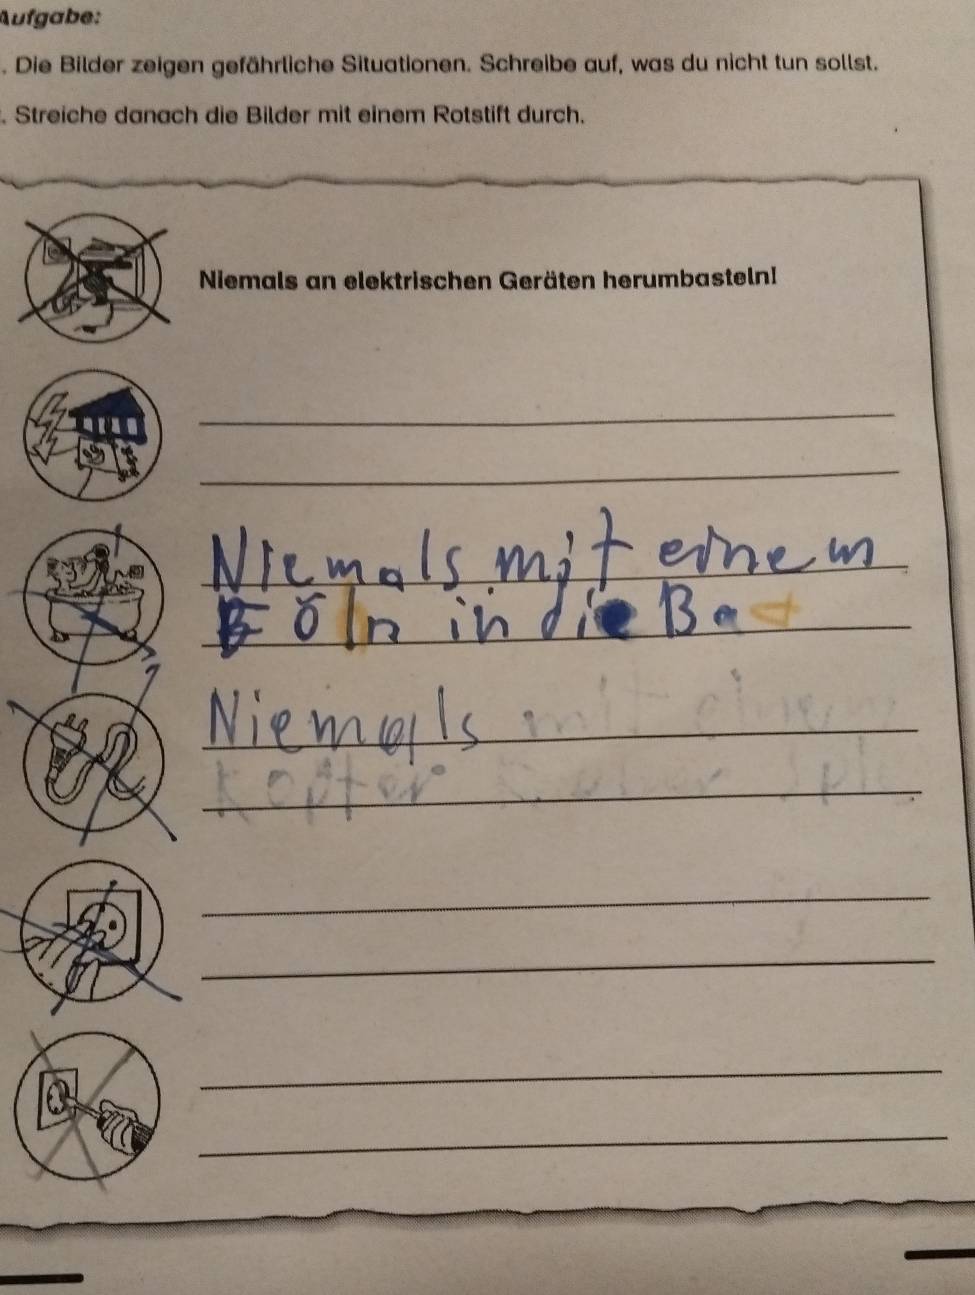 Aufgabe:
. Die Bilder zeigen gefährliche Situationen. Schreibe auf, was du nicht tun sollst.
. Streiche danach die Bilder mit einem Rotstift durch.
Niemals an elektrischen Geräten herumbasteln!
Niemals mit einem
Föln in die Bad
Niemals mit einem